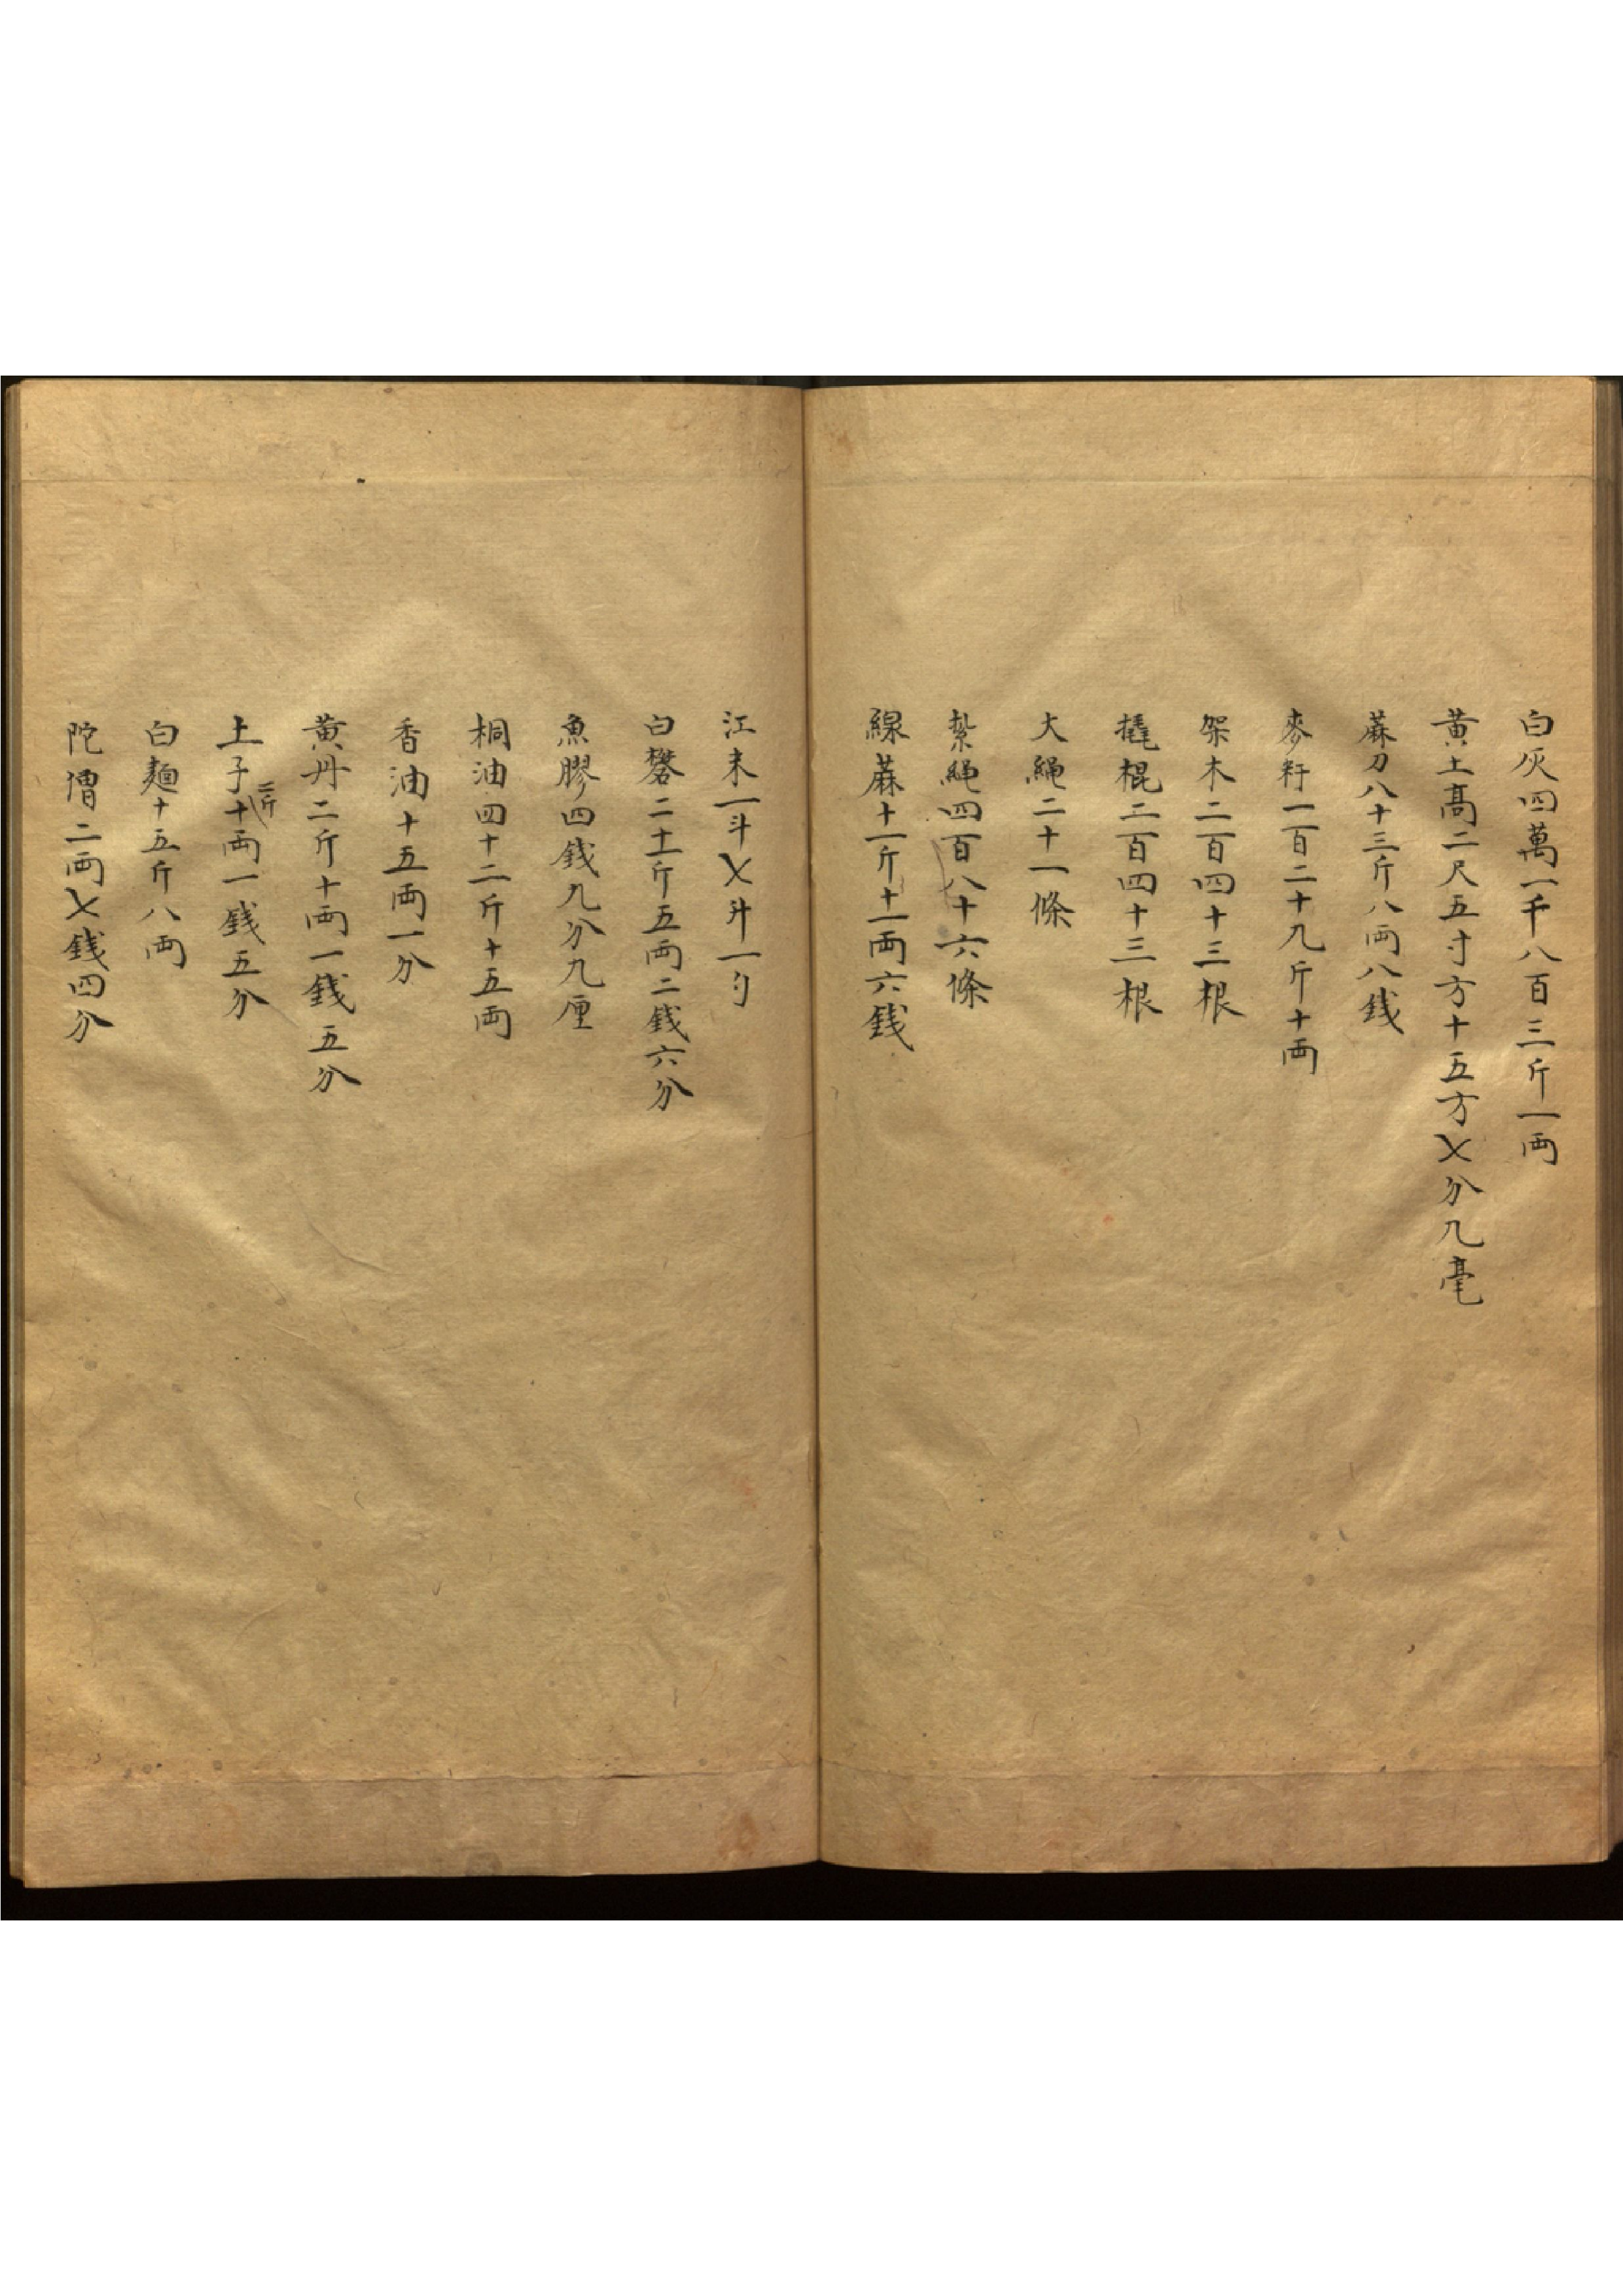 白灰四萬一千八百三斤一両
黃土高二尺五寸方十五方乂分九毫
蔴刀八十三斤八両八錢
麥䅘一百二十九斤十両
架木二百四十三根
撬棍二百四十三根
大繩二十一條
紥繩四百八十六條
線蔴十一斤十一両六錢
江末一斗乂升一勺
白礬二十一斤五両二錢六分
魚膠四錢九分九厘
桐油四十二斤十五両
香油十五両一分
黃丹二斤十両一錢五分
土子二斤十両一錢五分
白麵十五斤八両
陀僧二両乂錢四分